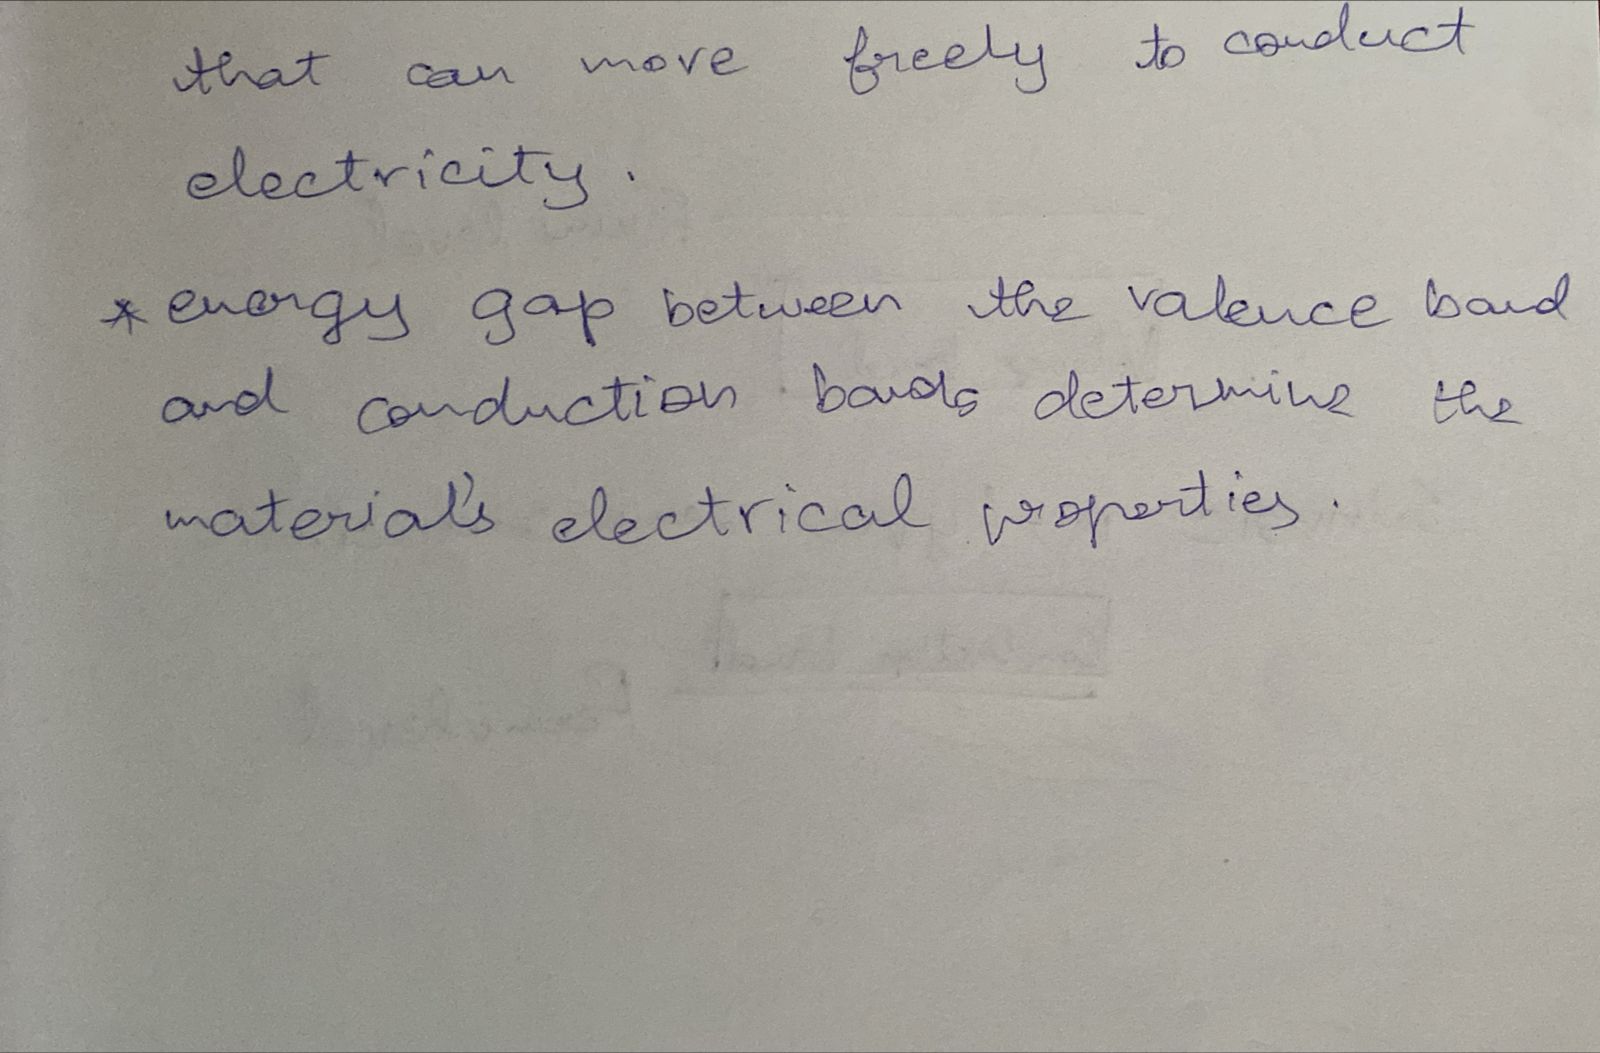 that can move freely to conduct
electricity.
* energy gap between the valence band
and conduction bands determine the
material's electrical properties.